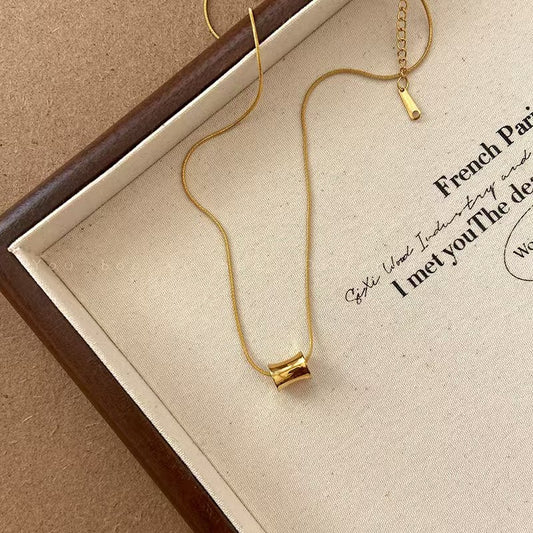 French Pari
SiXi Wood Industry and
I met youThe dea
Wo